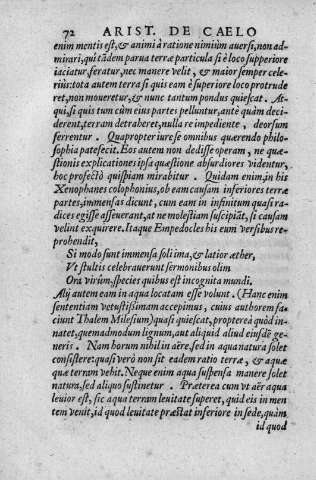 72 ARIST. DE CAELO
enim mentis est, & animi à ratione nimiùm auersi, non ad-
mirari, qui tādem parua terræ particula si è loco supperiore
iaciatur, feratur, nec manere velit, & maior semper cele-
rius: tota autem terra si quis eam è superiore loco protrude
ret, non moueretur, & nunc tantum pondus quiescat. At-
qui, si quis tum cùm eius partes pelluntur, antè quàm deci-
derent, terram detraheret, nulla re impediente, deorsum
ferrentur. Quapropter iure se omnibus quærendo philo-
sophia patefecit. Eos autem non dedisse operam, ne quæ-
stionis explicationes ipsa quæstione absurdiores videntur,
hoc profectò quispiam mirabitur. Quidam enim, in his
Xenophanes colophonius, ob eam causam inferiores terræ
partes, immensas dicunt, cum eam in infinitum quasi ra-
dices egisse asseuerant, at ne molestiam suscipiāt, si causam
velint exquirere. Itaque Empedocles his eum versibus re-
prehendit,
Si modo sunt immensa soli ima, & latior æther,
Vt stultis celebrauerunt sermonibus olim
Ora virûm, species quibus est incognita mundi.
Alij autem eam in aqua locatam esse volunt. (Hanc enim
sententiam vetustissimam accepimus, cuius authorem fa-
ciunt Thalem Milesium) quasi quiescat, propterea quòd in-
natet, quemadmodum lignum, aut aliquid aliud eiusdē ge-
neris. Nam horum nihil in aëre, sed in aqua natura solet
consistere: quasi verò non sit eadem ratio terræ, & aquæ
quæ terram vehit. Neque enim aqua suspensa manere solet
natura, sed aliquo sustinetur. Præterea cum vt aër aqua
leuior est, sic aqua terram leuitate superet, quid eis in men
tem venit, id quod leuitate præstat inferiore in sede, quàm
id quod